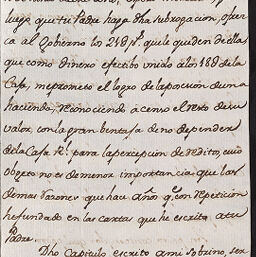 luego que tu Padre haga dha subrogacion, ofrez
ca al Gobierno los 218 p.s que le quiden de ella,
que como dinero efectibo unido a los 188 de la
Casa, me prometo el logro de la posecion de una
hacienda, reconociendo a censo el resto de su
valor, con la gran bentaja de no depender
de la Casa R.l para la percepcion de redito, cuio
obgeto no es de menor importancia que las
demas razones que hay años q.e con repeticion
he fundado en las cartas que he escrito a tu
Padre.
Dho Capitulo escrito a mi Sobrino, ser